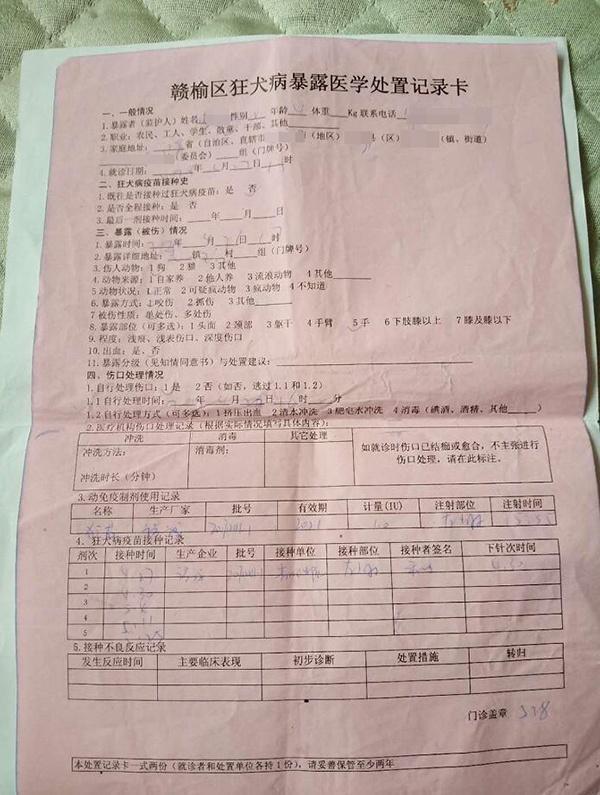 赣榆区狂犬病暴露医学处置记录卡
一、一般情况
1.暴露者（监护人）姓名 性别 年龄 体重 Kg 联系电话
2.职业：农民、工人、学生、散童、干部、其他
3.家庭地址： 省（自治区、直辖市 市（地区） 县（区） （镇、街道）
（委员会） 组（门牌号）
4.就诊日期： 年 月 日 时
二、狂犬病疫苗接种史
1.既往是否接种过狂犬病疫苗：是 否
2.是否全程接种：是 否
3.最后一剂接种时间： 年 月 日
三、暴露（被伤）情况
1.暴露时间： 年 月 日 时
2.暴露详细地址： 镇 村 组（门牌号）
3.伤人动物：1 狗 2 猫 3 其他
4.动物来源：1 自家养 2 他人养 3 流浪动物 4 其他
5.动物状况：1 正常 2 可疑疯动物 3 疯动物 4 不知道
6.暴露方式：1 咬伤 2 抓伤 3 其他
7 被伤性质：单处伤、多处伤
8.暴露部位（可多选）：1 头面 2 颈部 3 躯干 4 手臂 5 手 6 下肢膝以上 7 膝及膝以下
9.程度：浅痕、浅表伤口、深度伤口
10.出血：是、否
11.暴露分级（见知情同意书）与处置建议：
四、伤口处理情况
1.自行处理伤口：1 是 2 否（如否，逃过 1.1 和 1.2）
1.1 自行处理时间： 年 月 日 时 分
1.2 自行处理方式（可多选）：1 挤压出血 2 清水冲洗 3 肥皂水冲洗 4 消毒（碘酒、酒精、其他 ）
2.医疗机构伤口处理记录（根据实际情况填写具体内容）：
冲洗 消毒 其它处理
冲洗方法： 消毒剂：
冲洗时长（分钟）
如就诊时伤口已结痂或愈合，不主张进行
伤口处理，请在此标注。
3.动免疫制剂使用记录
名称 生产厂家 批号 有效期 计量(IU) 注射部位 注射时间
4. 狂犬病疫苗接种记录
剂次 接种时间 生产企业 批号 接种单位 接种部位 接种者签名 下针次时间
1 4.27 4.30
2 4.30
3
4
5
5.接种不良反应记录
发生反应时间 主要临床表现 初步诊断 处置措施 转归
门诊盖章
本处置记录卡一式两份（就诊者和处置单位各持 1 份），请妥善保管至少两年